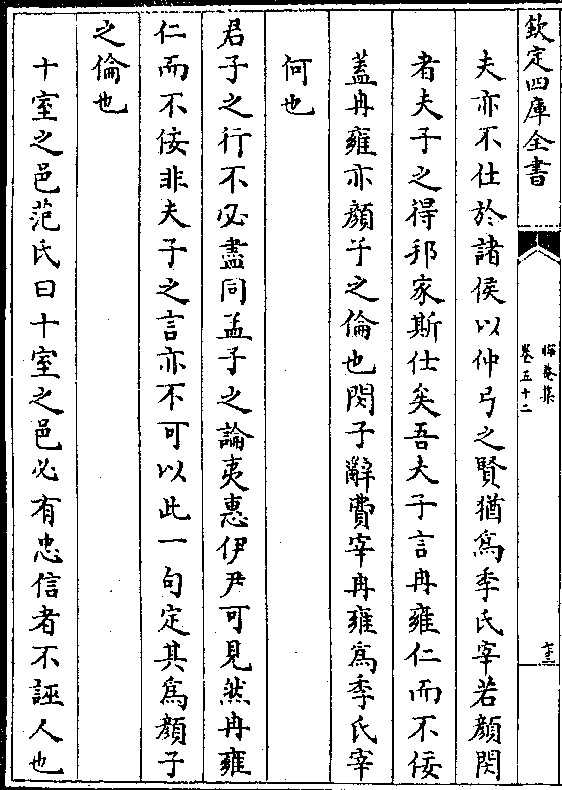 欽定四庫全書
晦菴集
卷五十二
夫亦不仕於諸侯以仲弓之賢猶為季氏宰若顔閔
者夫子之得邦家斯仕矣吾夫子言冉雍仁而不佞
蓋冉雍亦顔子之倫也閔子辭費宰冉雍為季氏宰
何也
君子之行不必盡同孟子之論夷惠伊尹可見然冉雍
仁而不佞非夫子之言亦不可以此一句定其為顔子
之倫也
十室之邑范氏曰十室之邑必有忠信者不誣人也